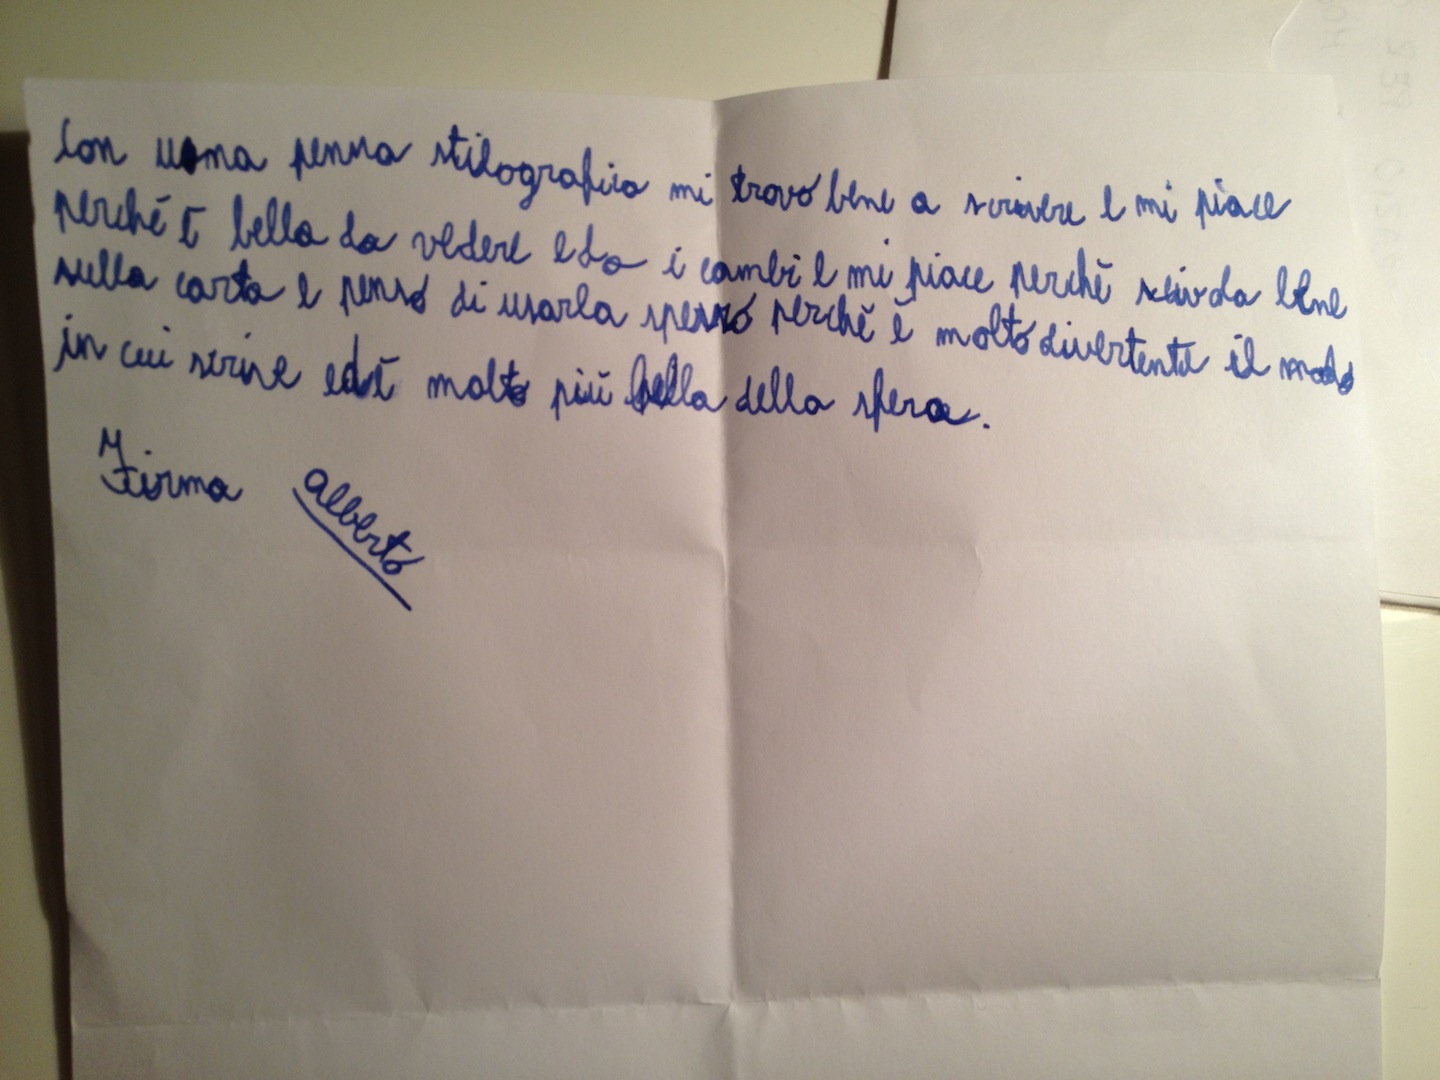 Con una penna stilografica mi trovo bene a scrivere e mi piace
perché è bella da vedere e fa i cambi e mi piace perché scivola bene
sulla carta e penso di usarla spesso perchè è molto divertente il modo
in cui scrive ed è molto più bella della sfera.
Firma Alberto